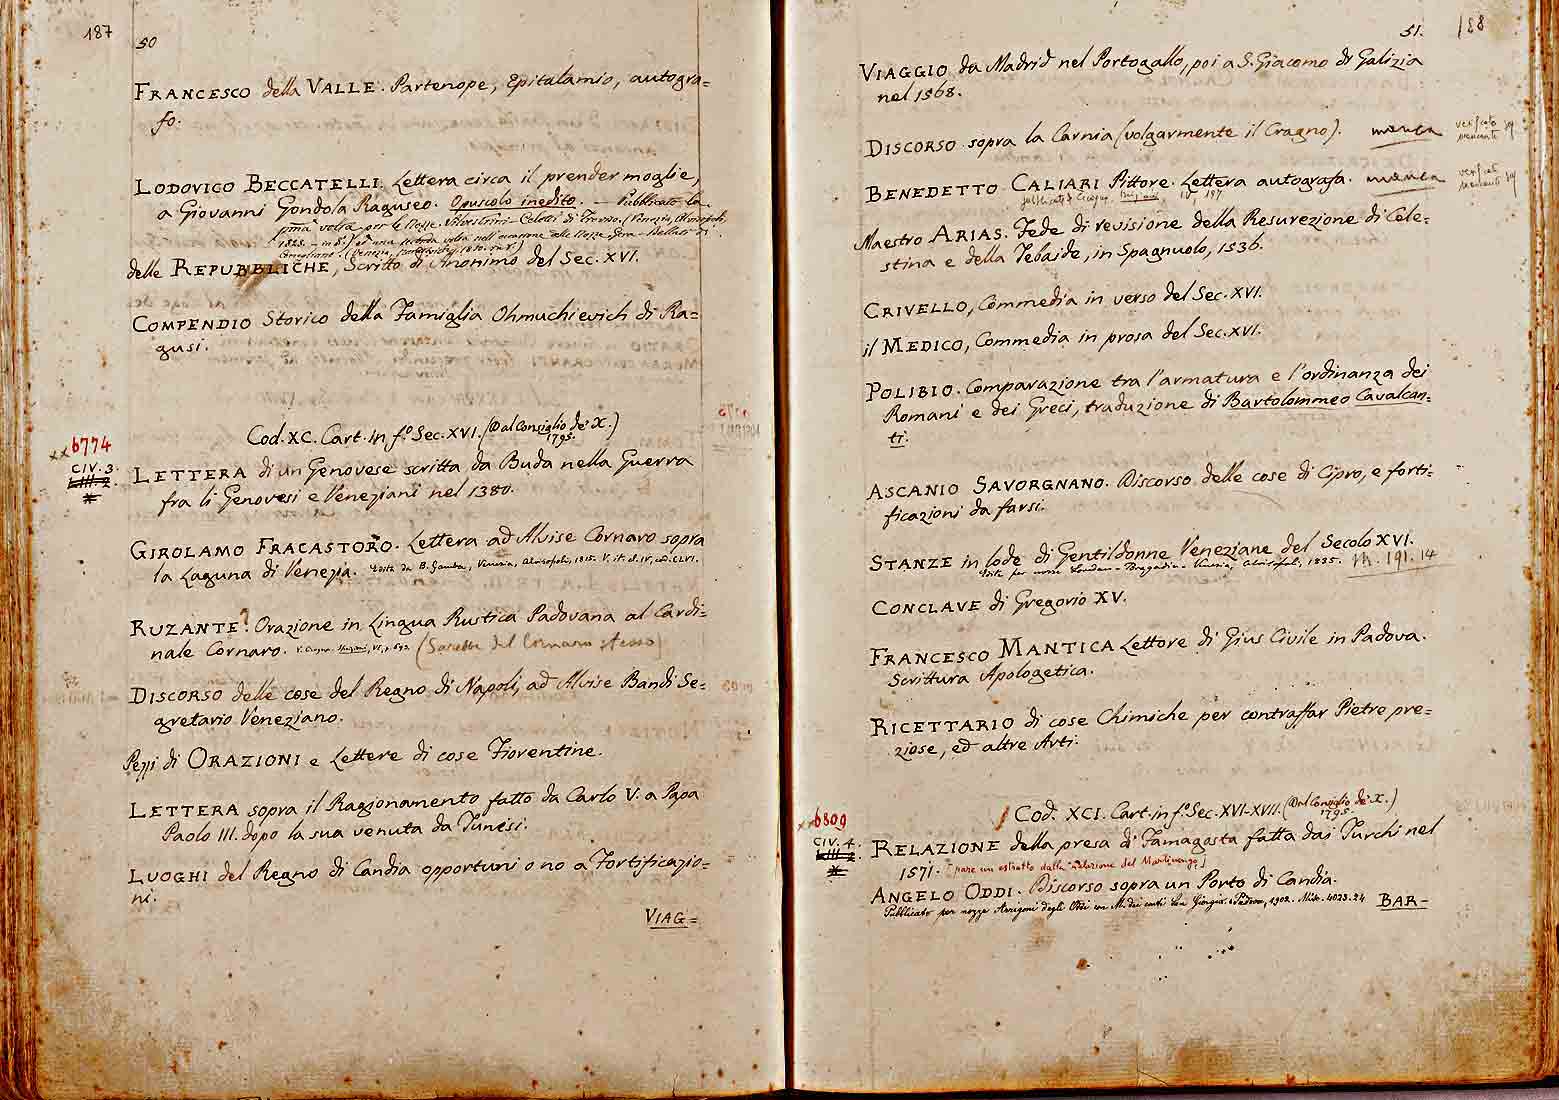 187
50
FRANCESCO della VALLE. Partenope, Epitalamio, autogra=
fo.
LODOVICO BECCATELLI. Lettera circa il prender moglie,
a Giovanni Gondola Raguseo. Opuscolo inedito. — Pubblicato la
prima volta per le Nozze
1825. - in 8.°) ed una seconda volta nell'occasione delle Nozze
delle REPUBBLICHE, Scritto di Anonimo del Sec. XVI.
COMPENDIO Storico della Famiglia Ohmuchievich di Ra=
gusi.
Cod. XC. Cart. in f.° Sec. XVI. (Dal Consiglio de' X.)
1795.
xx6774
CIV. 3.
LETTERA di un Genovese scritta da Buda nella Guerra
fra li Genovesi e Veneziani nel 1380.
GIROLAMO FRACASTORO. Lettera ad Alvise Cornaro sopra
la Laguna di Venezia. Edita da B. Gamba, Venezia, Alvisopoli, 1815.
RUZANTE? Orazione in Lingua Rustica Padovana al Cardi=
nale Cornaro. V. Cicogna (Sarebbe del Cornaro stesso)
DISCORSO delle cose del Regno di Napoli, ad Alvise Bandi Se=
gretario Veneziano.
Pezzi di ORAZIONI e Lettere di cose Fiorentine.
LETTERA sopra il Ragionamento fatto da Carlo V. a Papa
Paolo III. dopo la sua venuta da Tunesi.
LUOGHI del Regno di Candia opportuni o no a Fortificazio=
ni.
VIAG=
51. 188
VIAGGIO da Madrid nel Portogallo, poi a S. Giacomo di Galizia
nel 1568.
DISCORSO sopra la Carnia (volgarmente il Cragno). manca
verificato
mancante
BENEDETTO CALIARI Pittore. Lettera autografa. manca
mancante
Maestro ARIAS. Fede di revisione della Resurezione di Cele=
stina e della Tebaide, in Spagnuolo, 1536.
CRIVELLO, Commedia in verso del Sec. XVI.
il MEDICO, Commedia in prosa del Sec. XVI.
POLIBIO. Comparazione tra l'armatura e l'ordinanza dei
Romani e dei Greci, traduzione di Bartolommeo Cavalcan=
ti.
ASCANIO SAVORGNANO. Discorso delle cose di Cipro, e forti=
ficazioni da farsi.
STANZE in lode di Gentildonne Veneziane del Secolo XVI.
Edite per nozze Bragadin - Venezia, Alvisopoli, 1835. M. 191. 14
CONCLAVE di Gregorio XV.
FRANCESCO MANTICA Lettore di Gius Civile in Padova.
Scrittura Apologetica.
RICETTARIO di cose Chimiche per contraffar Pietre pre=
ziose, ed altre Arti.
Cod. XCI. Cart. in f.° Sec. XVI-XVII. (Dal Consiglio de' X.)
1795.
6809
CIV. 4.
RELAZIONE della presa di Famagosta fatta dai Turchi nel
1571. [pare un estratto dalla relazione del Martinengo]
ANGELO ODDI. Discorso sopra un Porto di Candia.
Pubblicato per nozze Arrigoni degli Oddi con M. dei conti San Giorgio. Padova, 1902. Misc. 4023.24 BAR-